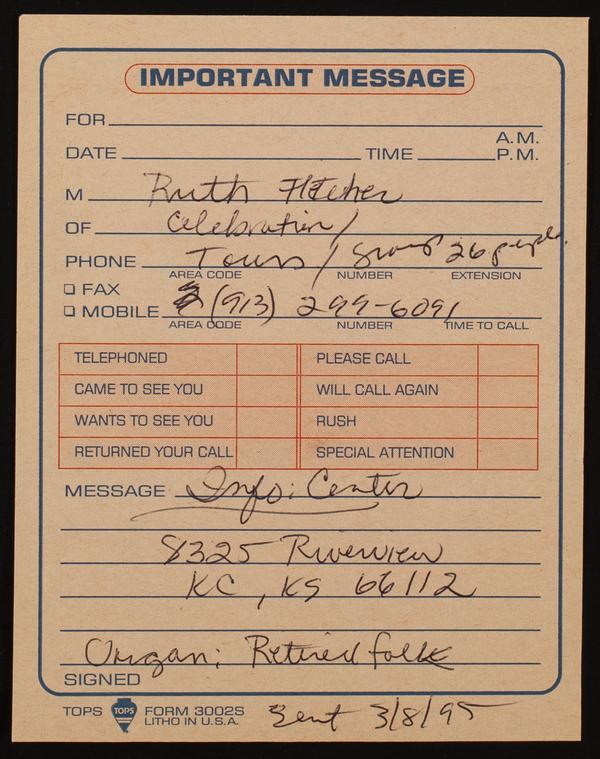 IMPORTANT MESSAGE
FOR
A.M.
DATE TIME P.M.
M Ruth Fletcher
OF Celebration/
PHONE Tours / group 26 people
AREA CODE NUMBER EXTENSION
FAX
MOBILE (913) 299-6091
AREA CODE NUMBER TIME TO CALL
TELEPHONED PLEASE CALL
CAME TO SEE YOU WILL CALL AGAIN
WANTS TO SEE YOU RUSH
RETURNED YOUR CALL SPECIAL ATTENTION
MESSAGE Info: Center
8325 Riverview
KC, KS 66112
Organ: Retired folk
SIGNED
TOPS TOPS FORM 3002S
LITHO IN U.S.A.
Sent 3/8/95